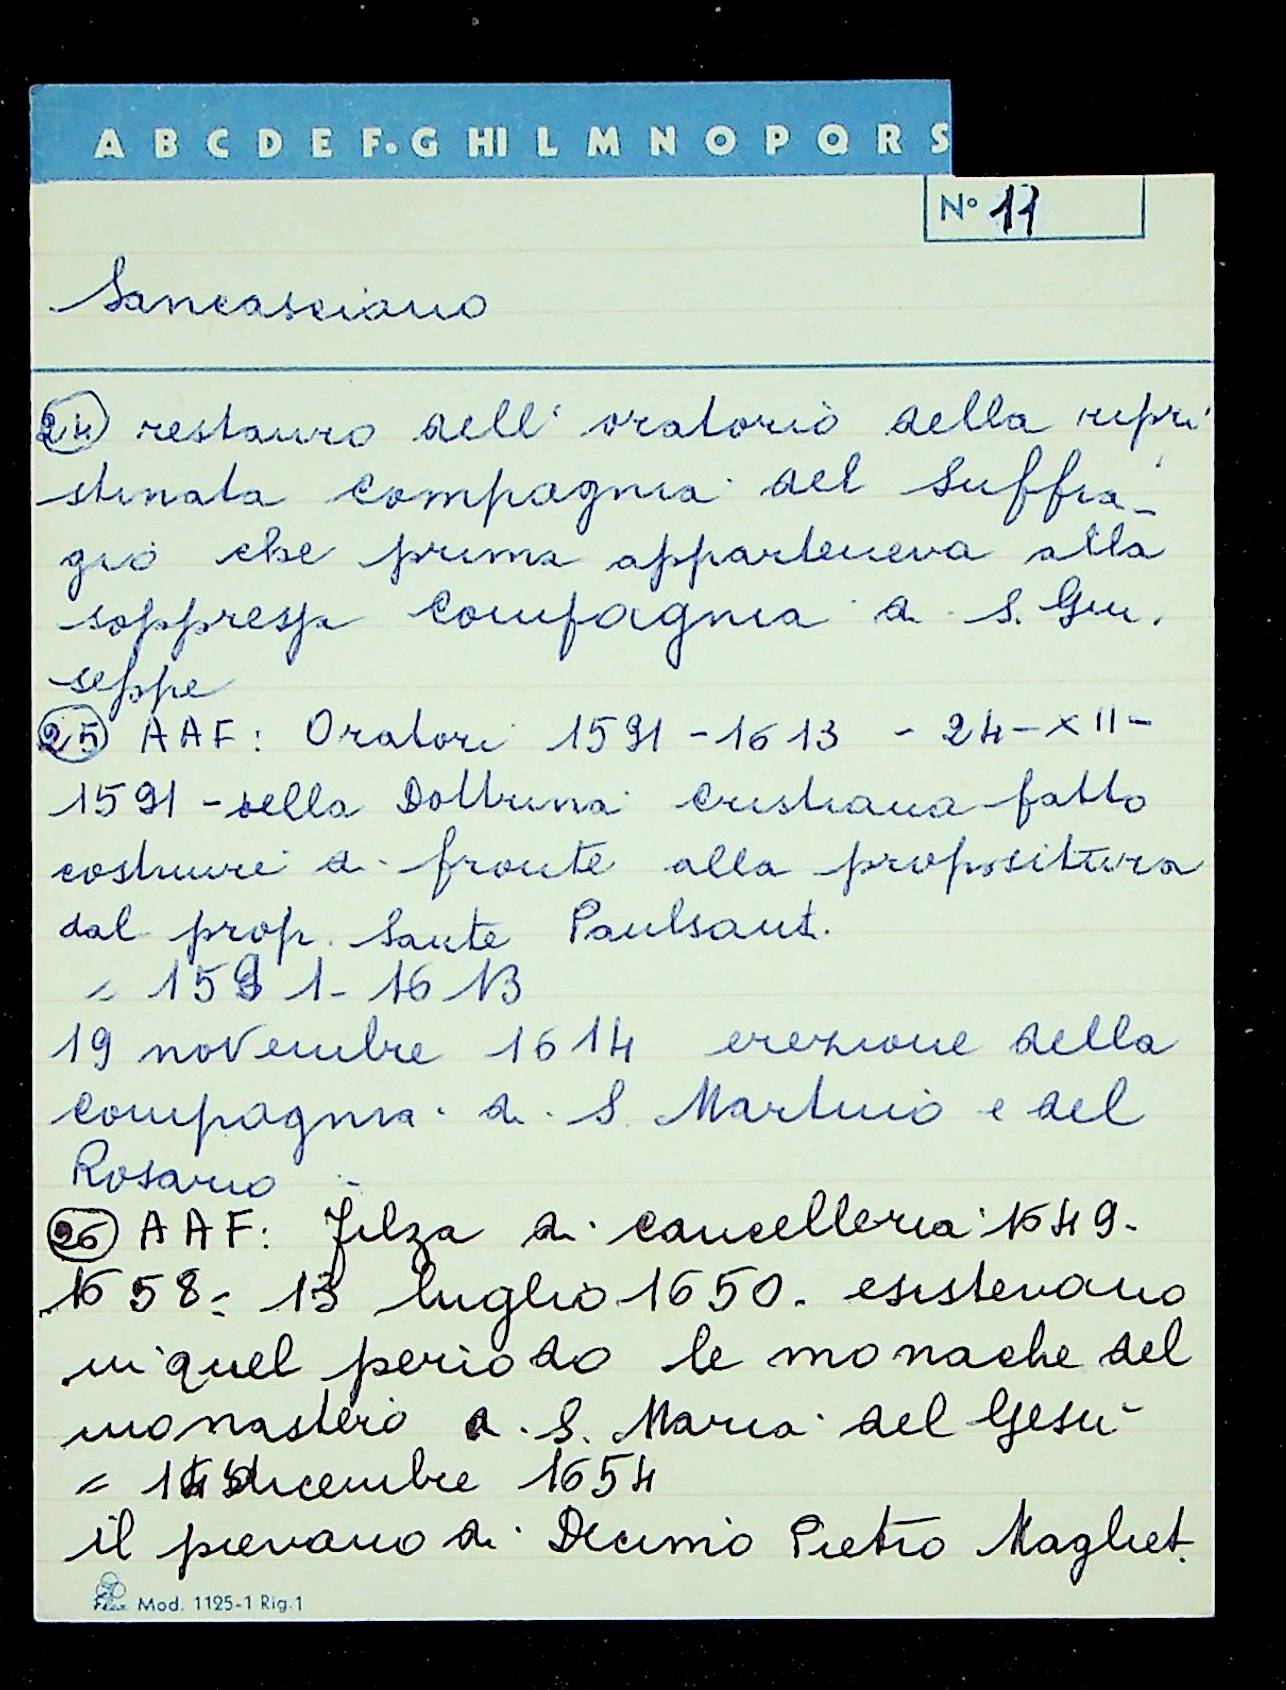 A B C D E F. G HI L M N O P Q R S
N° 11
Sancasciano
24 restauro dell' oratorio della ripri
stinata compagnia del Suffra-
gio che prima apparteneva alla
soppressa Compagnia di S. Giu.
seppe
25 AAF: Oratori 1591-1613 - 24-XII-
1591 - della Dottrina cristiana fatto
costruire di fronte alla propositura
dal prop. Sante Paulsant.
= 1591-1613
19 novembre 1614 erezione della
compagnia di S. Martino e del
Rosario -
26 AAF: Filza di cancelleria 1649-
1658 = 13 luglio 1650. esistevano
in quel periodo le monache del
monastero di S. Maria del Gesù
= dicembre 1654
il pievano di Decimo Pietro Magliet.
Mod. 1125-1 Rig.1